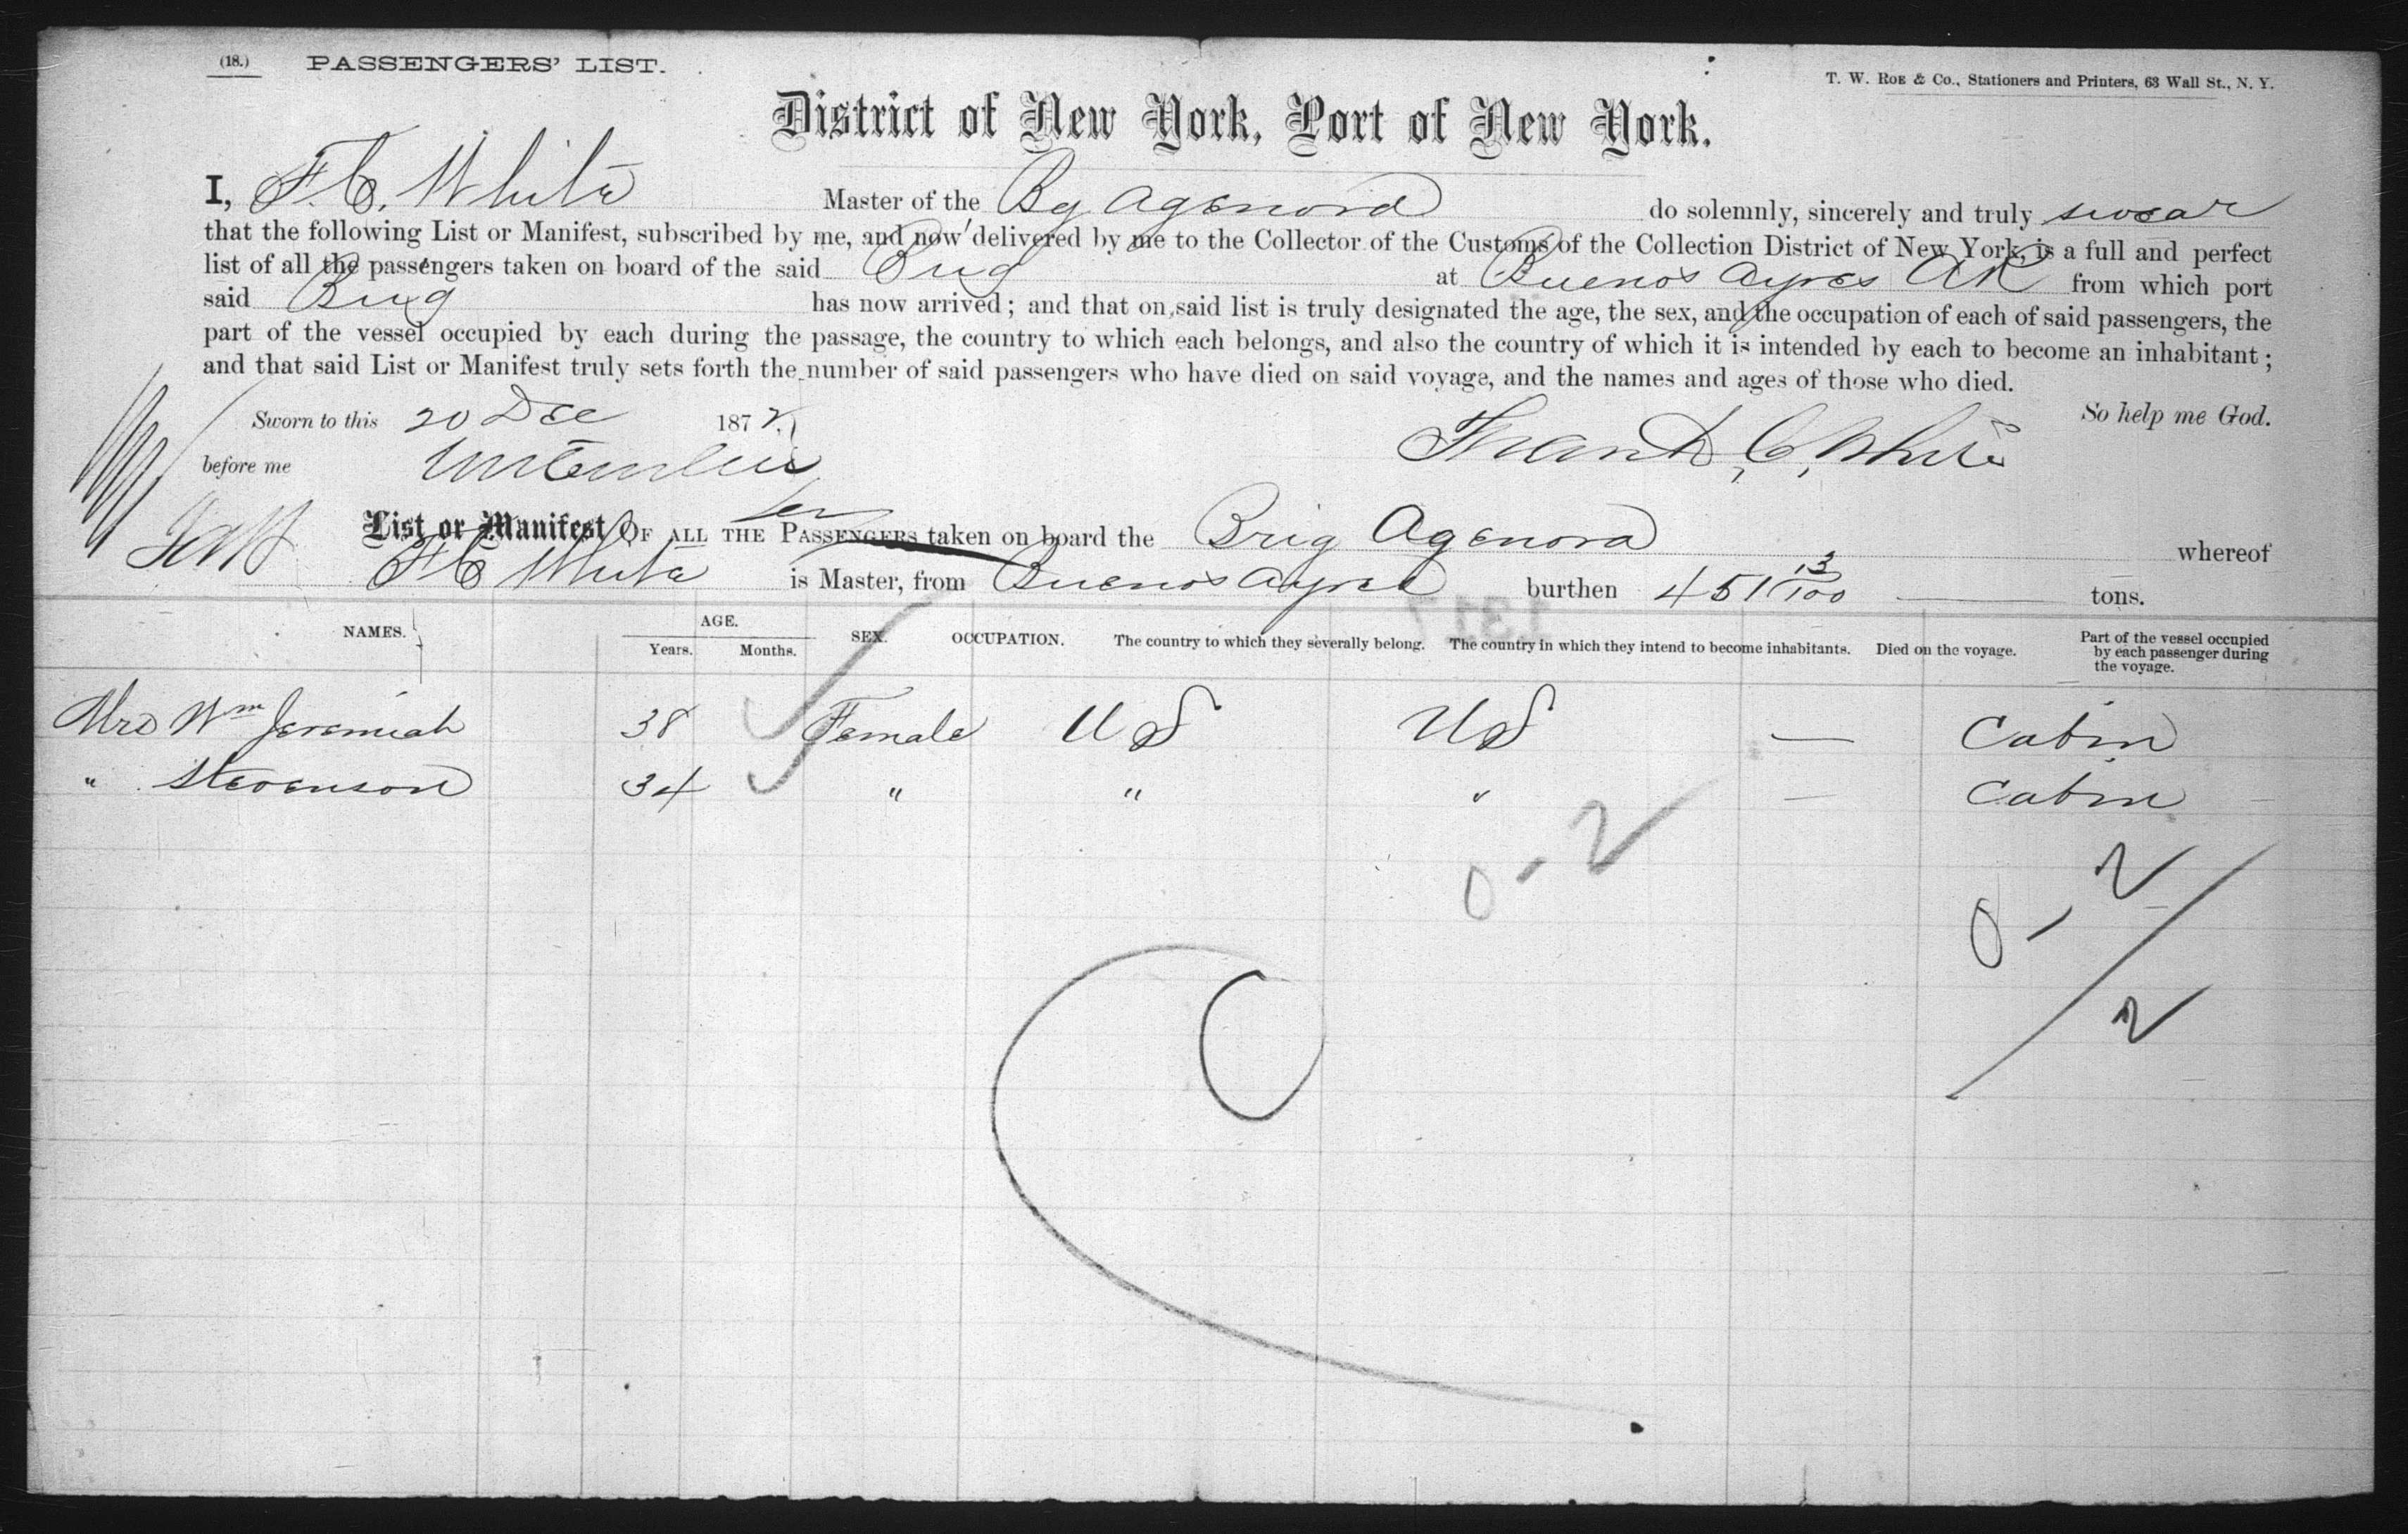 (18.) PASSENGERS' LIST.
T. W. Roe & Co., Stationers and Printers, 63 Wall St., N. Y.
District of New York, Port of New York.
I, F. C. White Master of the Bg Agenora do solemnly, sincerely and truly swear
that the following List or Manifest, subscribed by me, and now delivered by me to the Collector of the Customs of the Collection District of New York, is a full and perfect
list of all the passengers taken on board of the said Brig at Buenos Ayres AR from which port
said Brig has now arrived; and that on said list is truly designated the age, the sex, and the occupation of each of said passengers, the
part of the vessel occupied by each during the passage, the country to which each belongs, and also the country of which it is intended by each to become an inhabitant;
and that said List or Manifest truly sets forth the number of said passengers who have died on said voyage, and the names and ages of those who died.
Sworn to this 20 Dec 187 So help me God.
before me Frank, C, White
List or Manifest OF ALL THE PASSENGERS taken on board the Brig Agenora whereof
F C White is Master, from Buenos Ayres burthen 451 13/100 tons.
NAMES. AGE. Years. Months. SEX. OCCUPATION. The country to which they severally belong. The country in which they intend to become inhabitants. Died on the voyage. Part of the vessel occupied by each passenger during the voyage.
Mrs Wm Jeremiah 38 Female U S U S — Cabin
" Stevenson 34 " " " — Cabin
0 - 2
0 - 2
2